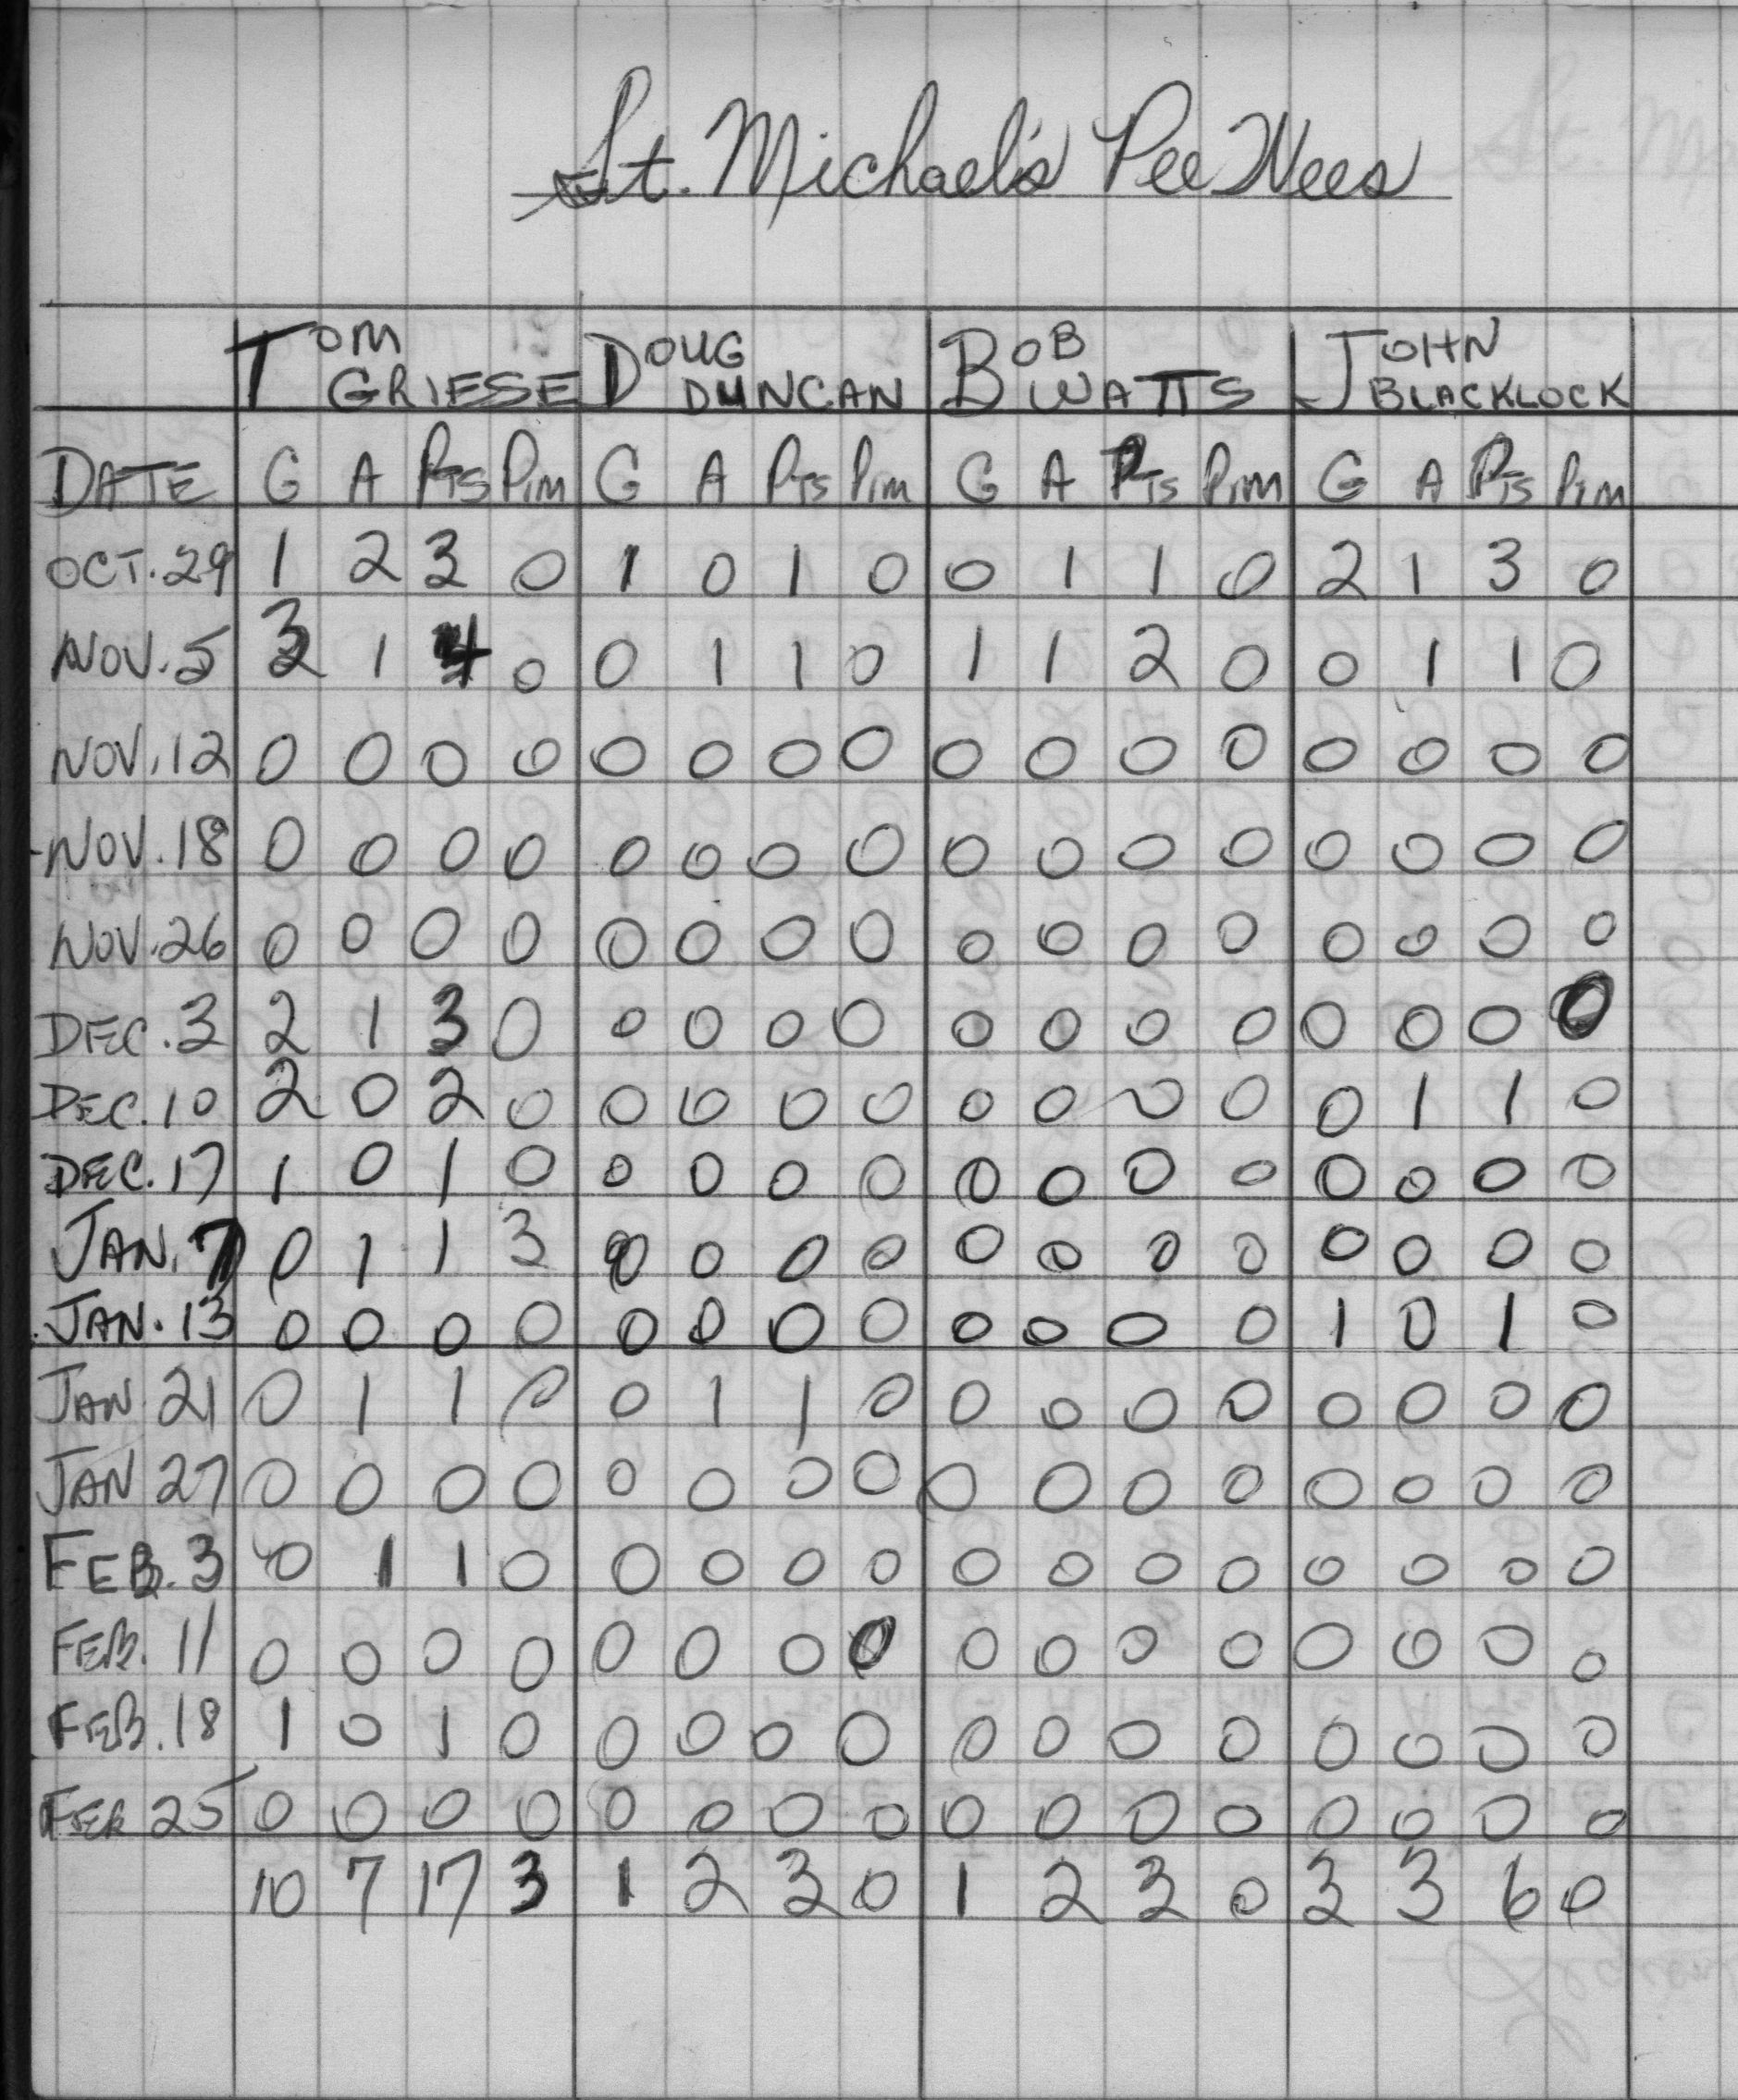 St. Michael's Pee Wees
TOM GRIESE DOUG DUNCAN BOB WATTS JOHN BLACKLOCK
DATE G A PTS PIM G A PTS PIM G A PTS PIM G A PTS PIM
OCT. 29 1 2 3 0 1 0 1 0 0 1 1 0 2 1 3 0
NOV. 5 3 1 4 0 0 1 1 0 1 1 2 0 0 1 1 0
NOV. 12 0 0 0 0 0 0 0 0 0 0 0 0 0 0 0 0
NOV. 18 0 0 0 0 0 0 0 0 0 0 0 0 0 0 0 0
NOV. 26 0 0 0 0 0 0 0 0 0 0 0 0 0 0 0 0
DEC. 3 2 1 3 0 0 0 0 0 0 0 0 0 0 0 0 0
DEC. 10 2 0 2 0 0 0 0 0 0 0 0 0 0 1 1 0
DEC. 17 1 0 1 0 0 0 0 0 0 0 0 0 0 0 0 0
JAN. 7 0 1 1 3 0 0 0 0 0 0 0 0 0 0 0 0
JAN. 13 0 0 0 0 0 0 0 0 0 0 0 0 1 0 1 0
JAN 21 0 1 1 0 0 1 1 0 0 0 0 0 0 0 0 0
JAN 27 0 0 0 0 0 0 0 0 0 0 0 0 0 0 0 0
FEB. 3 0 1 1 0 0 0 0 0 0 0 0 0 0 0 0 0
FEB. 11 0 0 0 0 0 0 0 0 0 0 0 0 0 0 0 0
FEB. 18 1 0 1 0 0 0 0 0 0 0 0 0 0 0 0 0
FEB 25 0 0 0 0 0 0 0 0 0 0 0 0 0 0 0 0
10 7 17 3 1 2 3 0 1 2 3 0 3 3 6 0